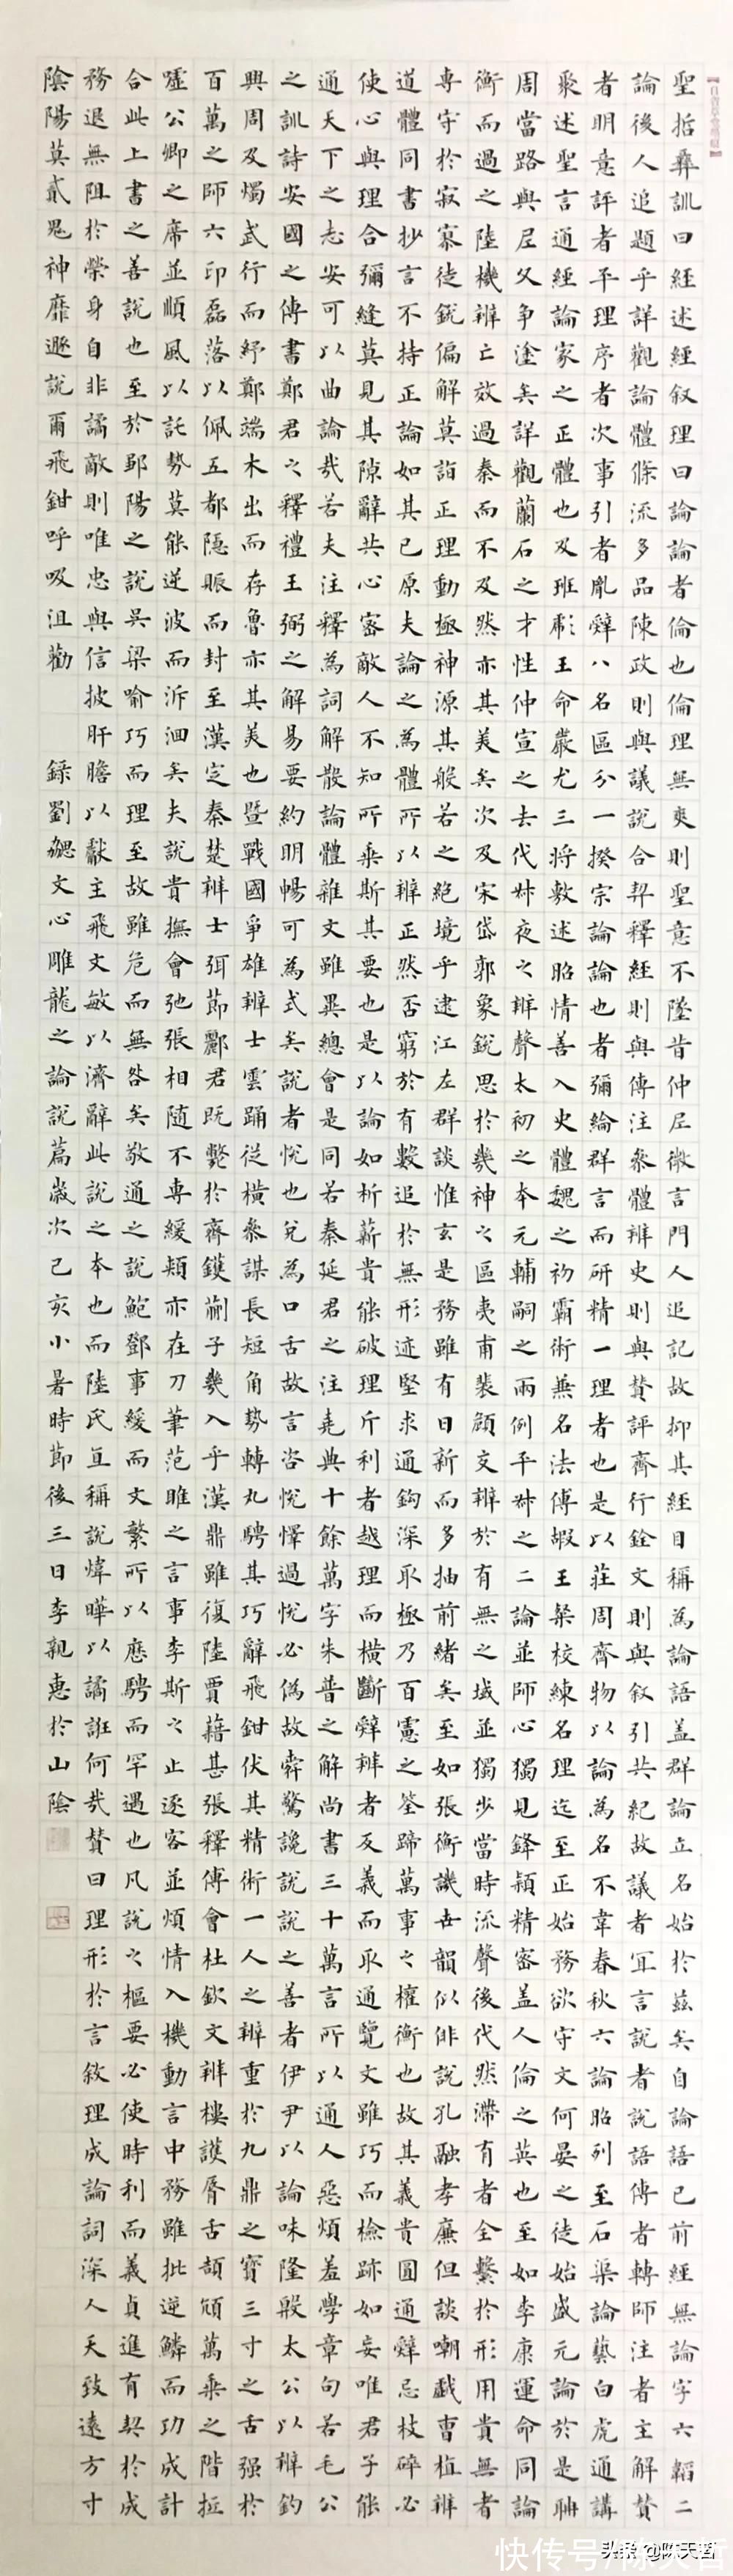 聖哲彝訓曰經述經叙理曰論論者倫也倫理無爽則聖意不墜昔仲尼微言門人追記故抑其經目稱為論語蓋群論立名始於茲矣自論語已前經無論字六韜二
論後人追題乎詳觀論體條流多品陳政則與議說合契釋經則與傳注參體辨史則與贊評齊行銓文則與叙引共紀故議者宜言說者說語傳者轉師注者主解贊
者明意評者平理序者次事引者胤辭八名區分一揆宗論論也者彌綸群言而研精一理者也是以莊周齊物以論為名不韋春秋六論昭列至石渠論藝白虎通講
聚述聖言通經論家之正體也及班彪王命嚴尤三將敷述昭情善入史體魏之初霸術兼名法傅嘏王粲校練名理迄至正始務欲守文何晏之徒始盛元論於是聃
周當路與尼父爭塗矣詳觀蘭石之才性仲宣之去代叔夜之辨聲太初之本元輔嗣之兩例平叔之二論並師心獨見鋒穎精密蓋人倫之英也至如李康運命同論
衡而過之陸機辨亡效過秦而不及然亦其美矣次及宋岱郭象銳思於幾神之區夷甫裴頠交辨於有無之域並獨步當時流聲後代然滯有者全繫於形用貴無者
專守於寂寥徒銳偏解莫詣正理動極神源其般若之絕境乎逮江左群談惟玄是務雖有日新而多抽前緒矣至如張衡譏世韻似俳說孔融孝廉但談嘲戲曹植辨
道體同書抄言不持正論如其已原夫論之為體所以辨正然否窮於有數追於無形迹堅求通鉤深取極乃百慮之筌蹄萬事之權衡也故其義貴圓通辭忌枝碎必
使心與理合彌縫莫見其隙辭共心密敵人不知所乘斯其要也是以論如析薪貴能破理斤利者越理而橫斷辭辨者反義而取通覽文雖巧而檢跡如妄唯君子能
通天下之志安可以曲論哉若夫注釋為詞解散論體雜文雖異總會是同若秦延君之注堯典十餘萬字朱普之解尚書三十萬言所以通人惡煩羞學章句若毛公
之訓詩安國之傳書鄭君之釋禮王弼之解易要約明暢可為式矣說者悅也兌為口舌故言咨悅懌過悅必偽故舜驚讒說說之善者伊尹以論味隆殷太公以辨釣
興周及燭武行而紓鄭端木出而存魯亦其美也暨戰國爭雄辨士雲踊從橫參謀長短角勢轉丸騁其巧辭飛鉗伏其精術一人之辨重於九鼎之寶三寸之舌强於
百萬之師六印磊落以佩五都隱賑而封至漢定秦楚辨士弭節酈君既斃於齊鑊蒯子幾入乎漢鼎雖復陸賈藉甚張釋傅會杜欽文辨樓護脣舌頡頏萬乘之階抵
噓公卿之席並順風以託勢莫能逆波而泝洄矣夫說貴撫會弛張相隨不專緩頰亦在刀筆范雎之言事李斯之止逐客並煩情入機動言中務雖批逆鱗而功成計
合此上書之善說也至於鄒陽之說吳梁喻巧而理至故雖危而無咎矣敬通之說鮑鄧事緩而文繁所以應騁而罕遇也凡說之樞要必使時利而義貞進有契於成
務退無阻於榮身自非譎敵則唯忠與信披肝膽以獻主飛文敏以濟辭此說之本也而陸氏直稱說煒曄以譎誑何哉贊曰理形於言敘理成論詞深人天致遠方寸
陰陽莫貳鬼神靡遯說爾飛鉗呼吸沮勸 錄劉勰文心雕龍之論說篇歲次己亥小暑時節後三日李親惠於山陰
快传号/陈天哲
头条 @陈天哲